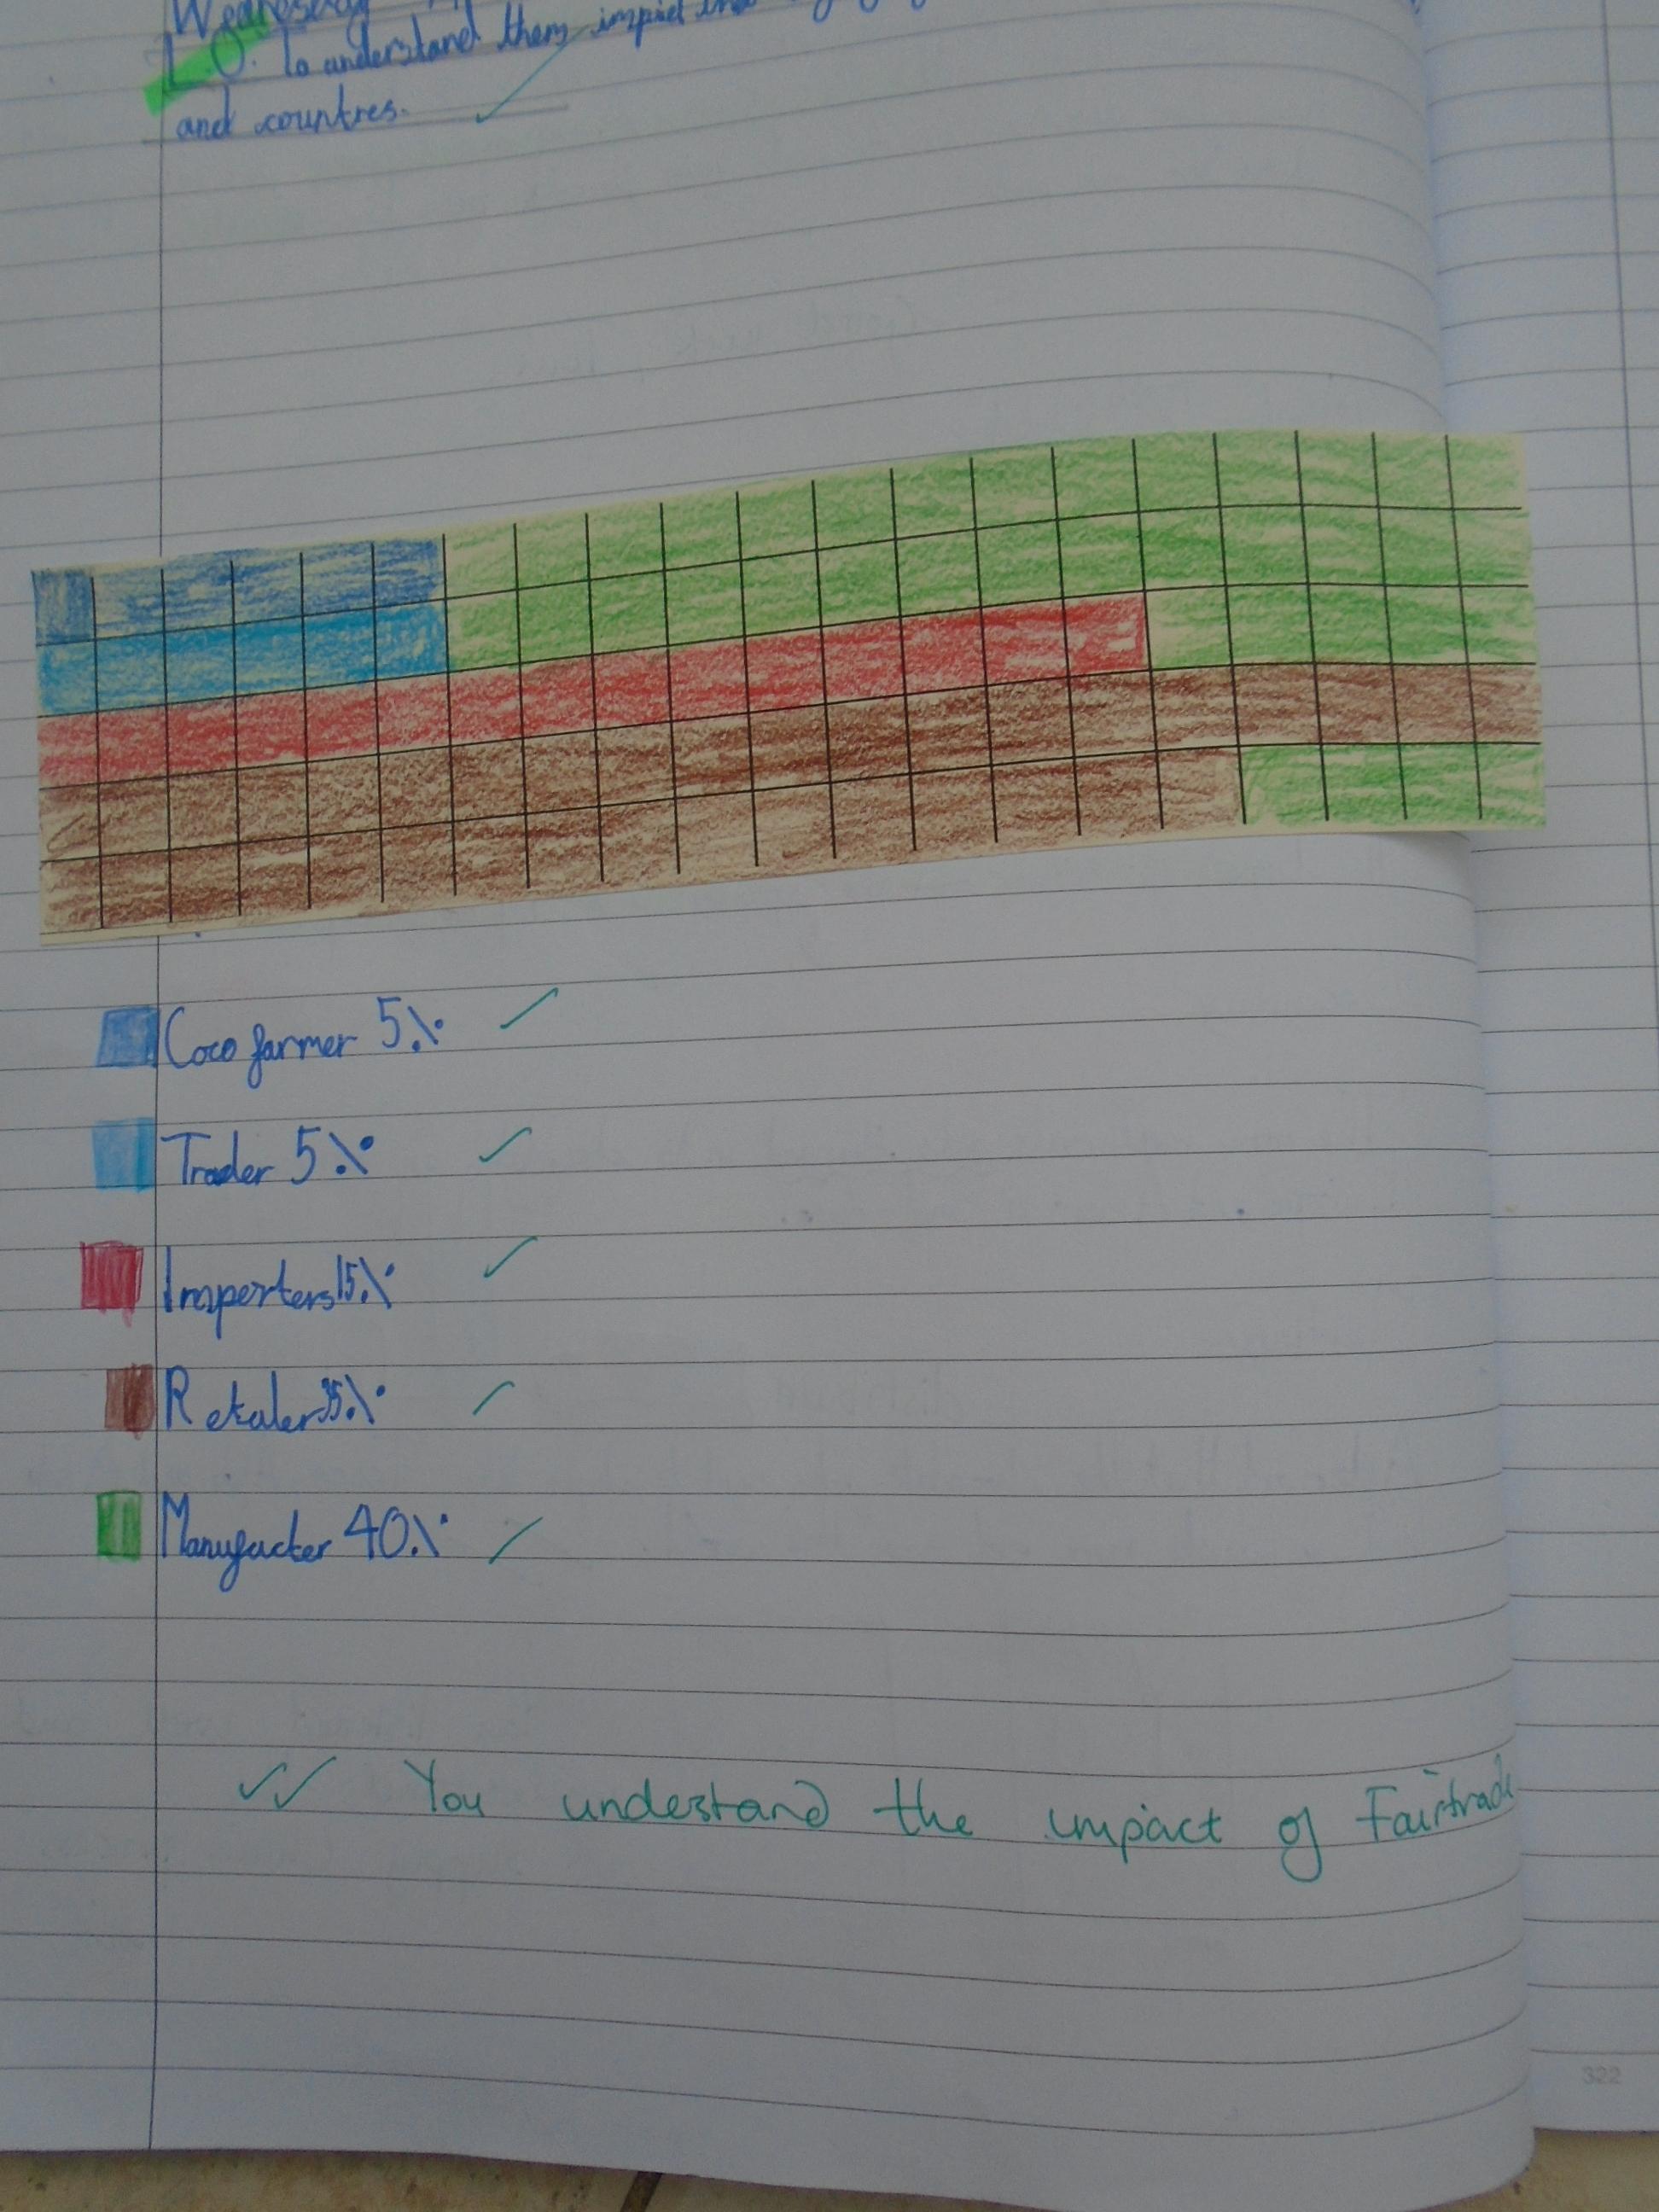 Wednesday
L.O. To understand them impact the
and countres.
Coco farmer 5%
Trader 5%
Importers 15%
Retaler 35%
Manufacter 40%
You undestand the impact of Fairtrade
322